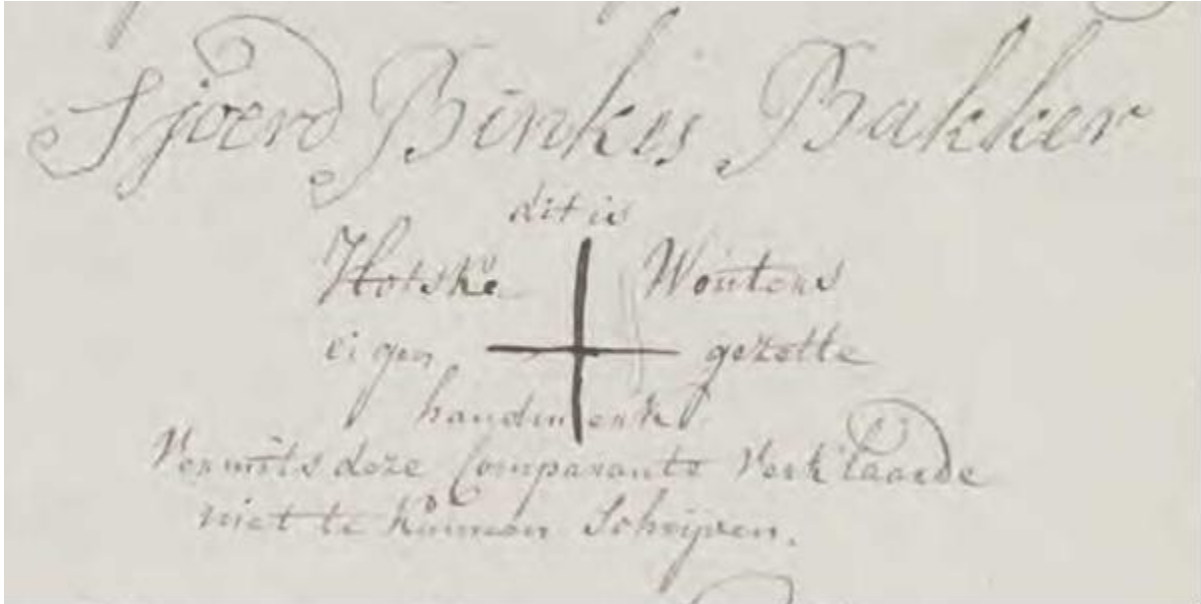 Sjoerd Binkes Bakker
dit is
Hotske Wouters
eigen gezette
handmerk
Vermits deze Comparante verklaarde
niet te kunnen Schrijven.